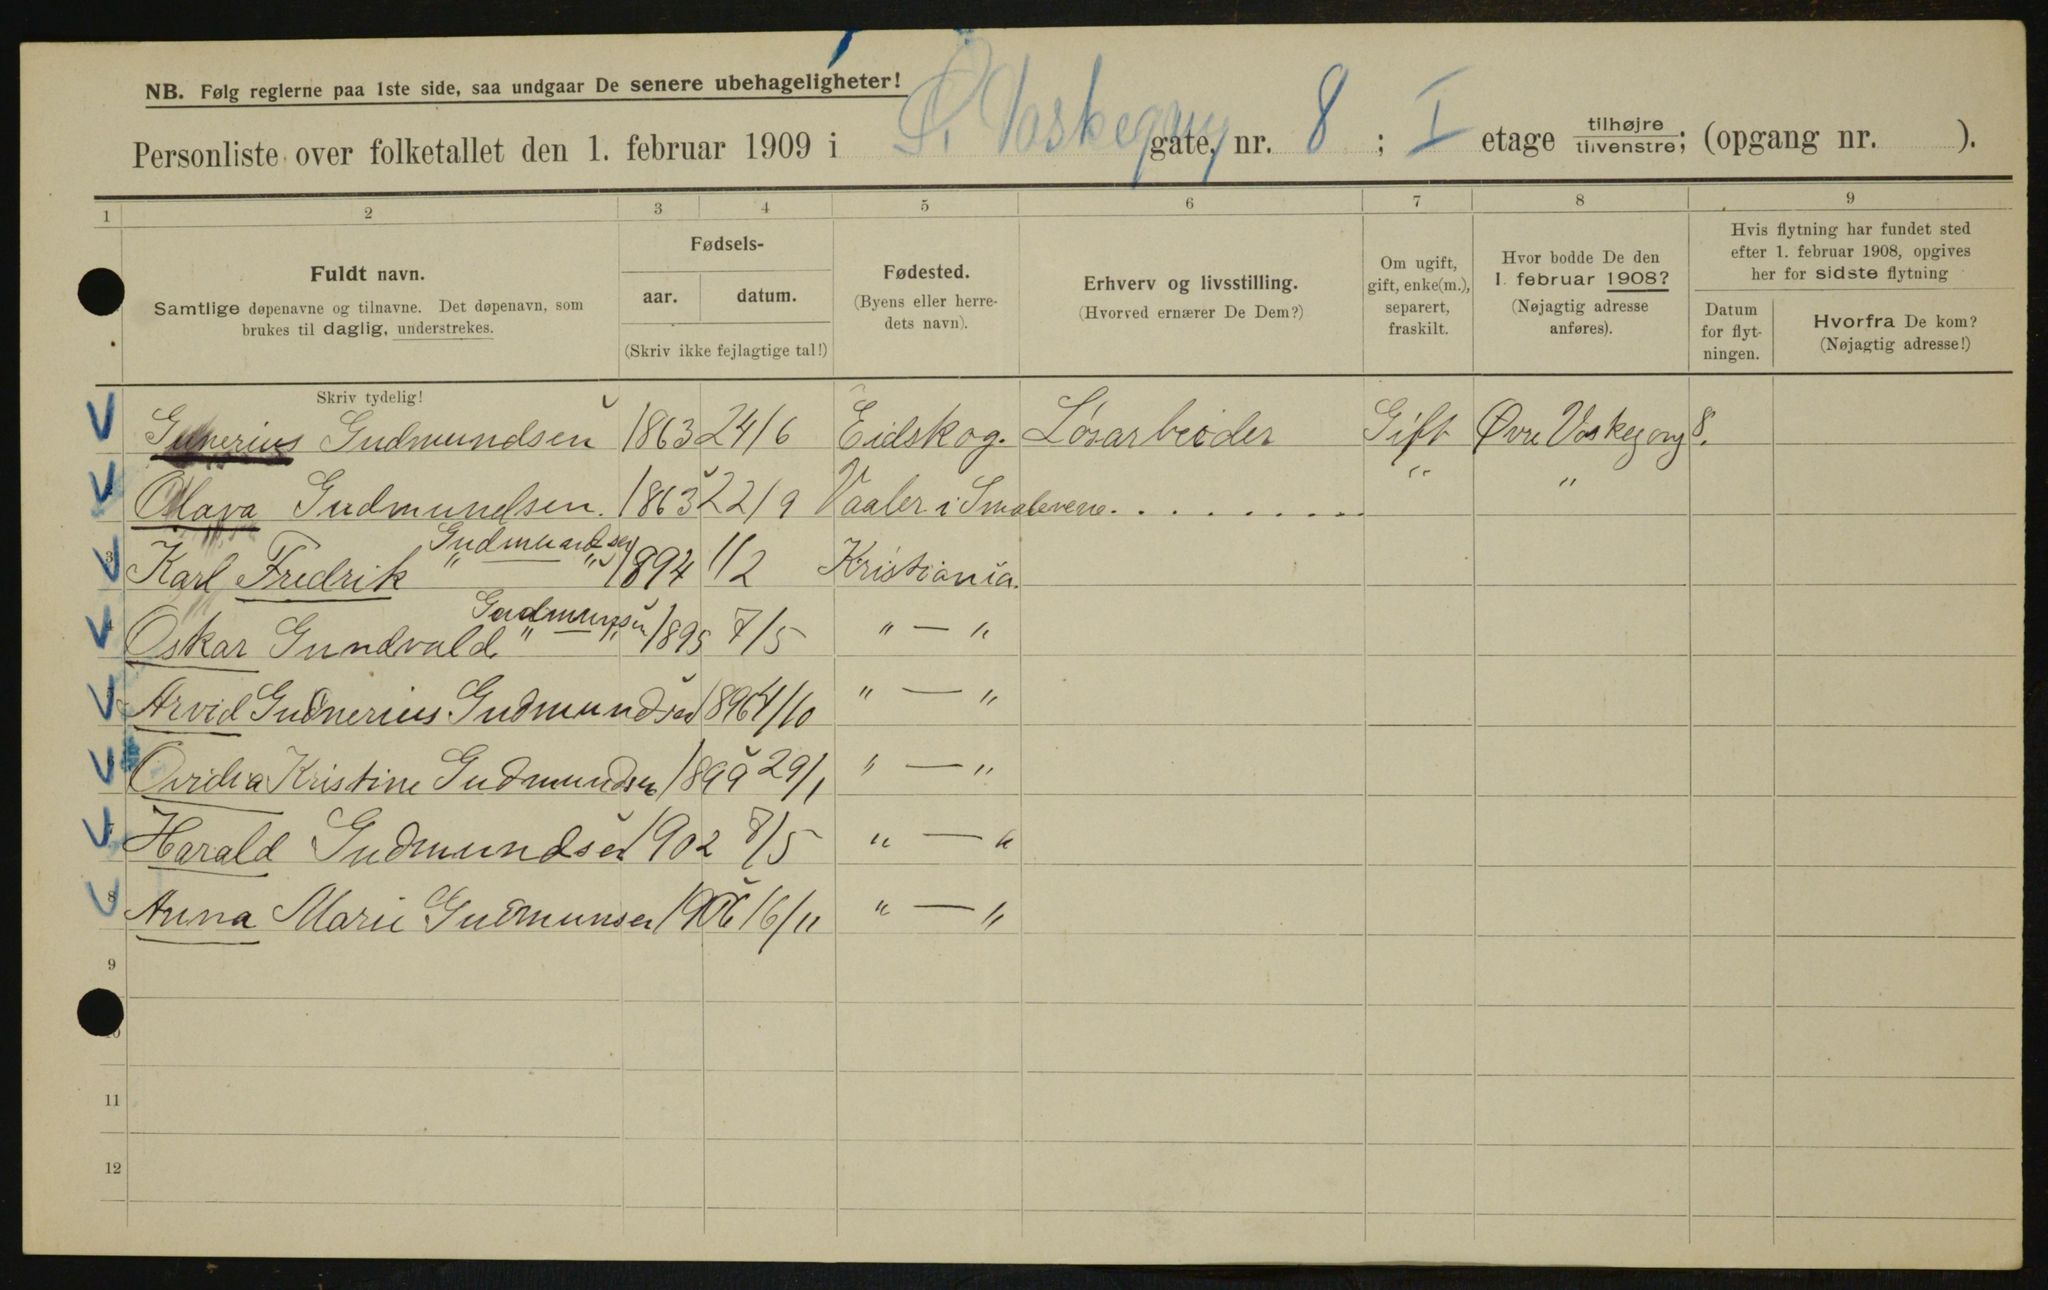 NB. Følg reglerne paa 1ste side, saa undgaar De senere ubehageligheter!
Personliste over folketallet den 1. februar 1909 i Ø. Vaskegang gate, nr. 8 ; I etage tilhøjre tilvenstre; (opgang nr. ).
1 2 3 4 5 6 7 8 9
Fuldt navn.
Samtlige døpenavne og tilnavne. Det døpenavn, som
brukes til daglig, understrekes.
Skriv tydelig!
Fødsels-
aar. datum.
(Skriv ikke fejlagtige tal!)
Fødested.
(Byens eller herre-
dets navn).
Erhverv og livsstilling.
(Hvorved ernærer De Dem?)
Om ugift,
gift, enke(m.),
separert,
fraskilt.
Hvor bodde De den
1. februar 1908?
(Nøjagtig adresse
anføres).
Hvis flytning har fundet sted
efter 1. februar 1908, opgives
her for sidste flytning
Datum
for flyt-
ningen.
Hvorfra De kom?
(Nøjagtig adresse!)
Gunerius Gudmundsen 1863 24/6 Eidskog. Løsarbeider Gift Øvre Vaskegang 8.
Olava Gudmundsen. 1863 22/9 Vaaler i Smalenene. . . . . . . . . . " "
3 Karl Fredrik " Gudmundsen " 1894 1/2 Kristiania.
4 Oskar Gundvald " Gudmunsen " 1895 7/5 " — "
Arvid Gudnerius Gudmundsen 1896 4/10 " — "
6 Ovidia Kristine Gudmundsen 1899 29/1 " — "
7 Harald Gudmundsen 1902 8/5 " — "
8 Anna Marie Gudmunsen 1906 16/11 " — "
9
10
11
12